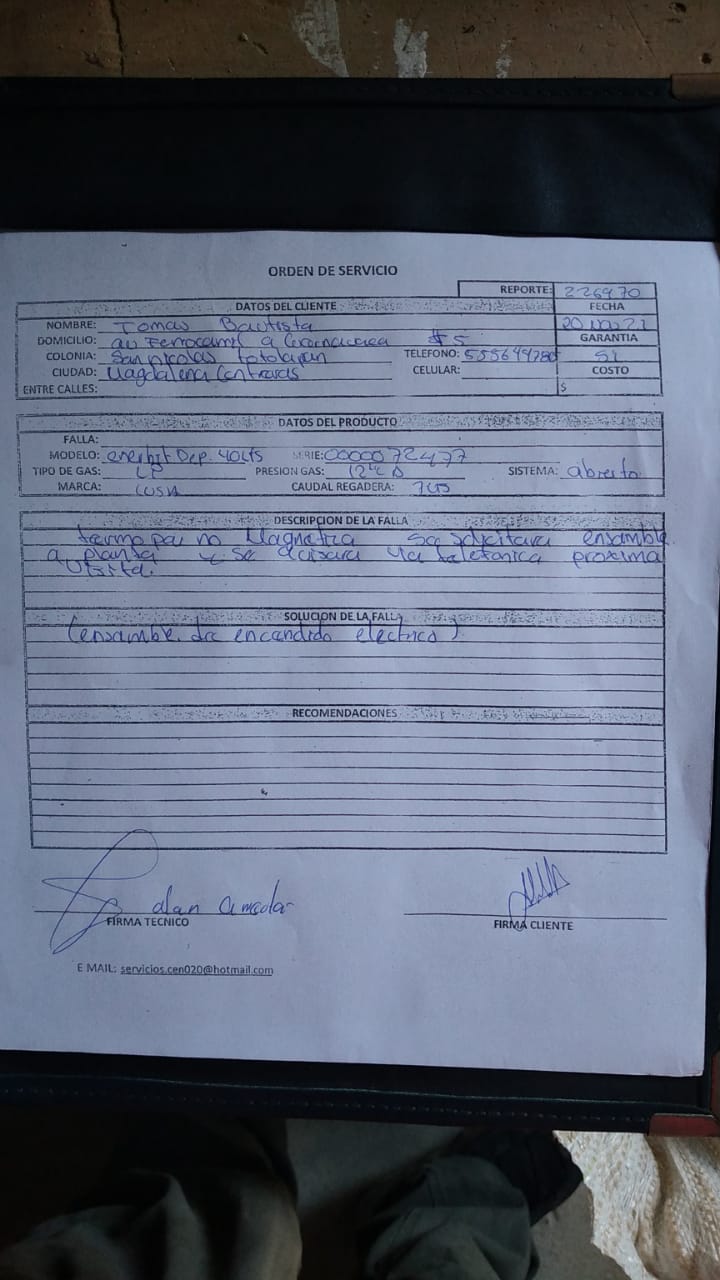 ORDEN DE SERVICIO
REPORTE: 226970
DATOS DEL CLIENTE
FECHA
NOMBRE: Tomas Bautista
20 Nov 21
DOMICILIO: av Ferrocarril a Cuernavaca #5
GARANTIA
COLONIA: San nicolas totolapan
TELEFONO:
SI
CIUDAD: Magdalena Contreras
CELULAR:
COSTO
ENTRE CALLES:
$
DATOS DEL PRODUCTO
FALLA:
MODELO: enerbit Dep. 40Lts
SERIE: 0000072477
TIPO DE GAS: LP
PRESION GAS:
SISTEMA: abierto
MARCA: CUSA
CAUDAL REGADERA:
DESCRIPCION DE LA FALLA
termo par no Magnetiza se solicitara ensamble
a planta y se avisara via telefonica proxima
visita.
SOLUCION DE LA FALLA
(ensamble de encendido electrico)
RECOMENDACIONES
FIRMA TECNICO
FIRMA CLIENTE
E MAIL: servicios.cen020@hotmail.com